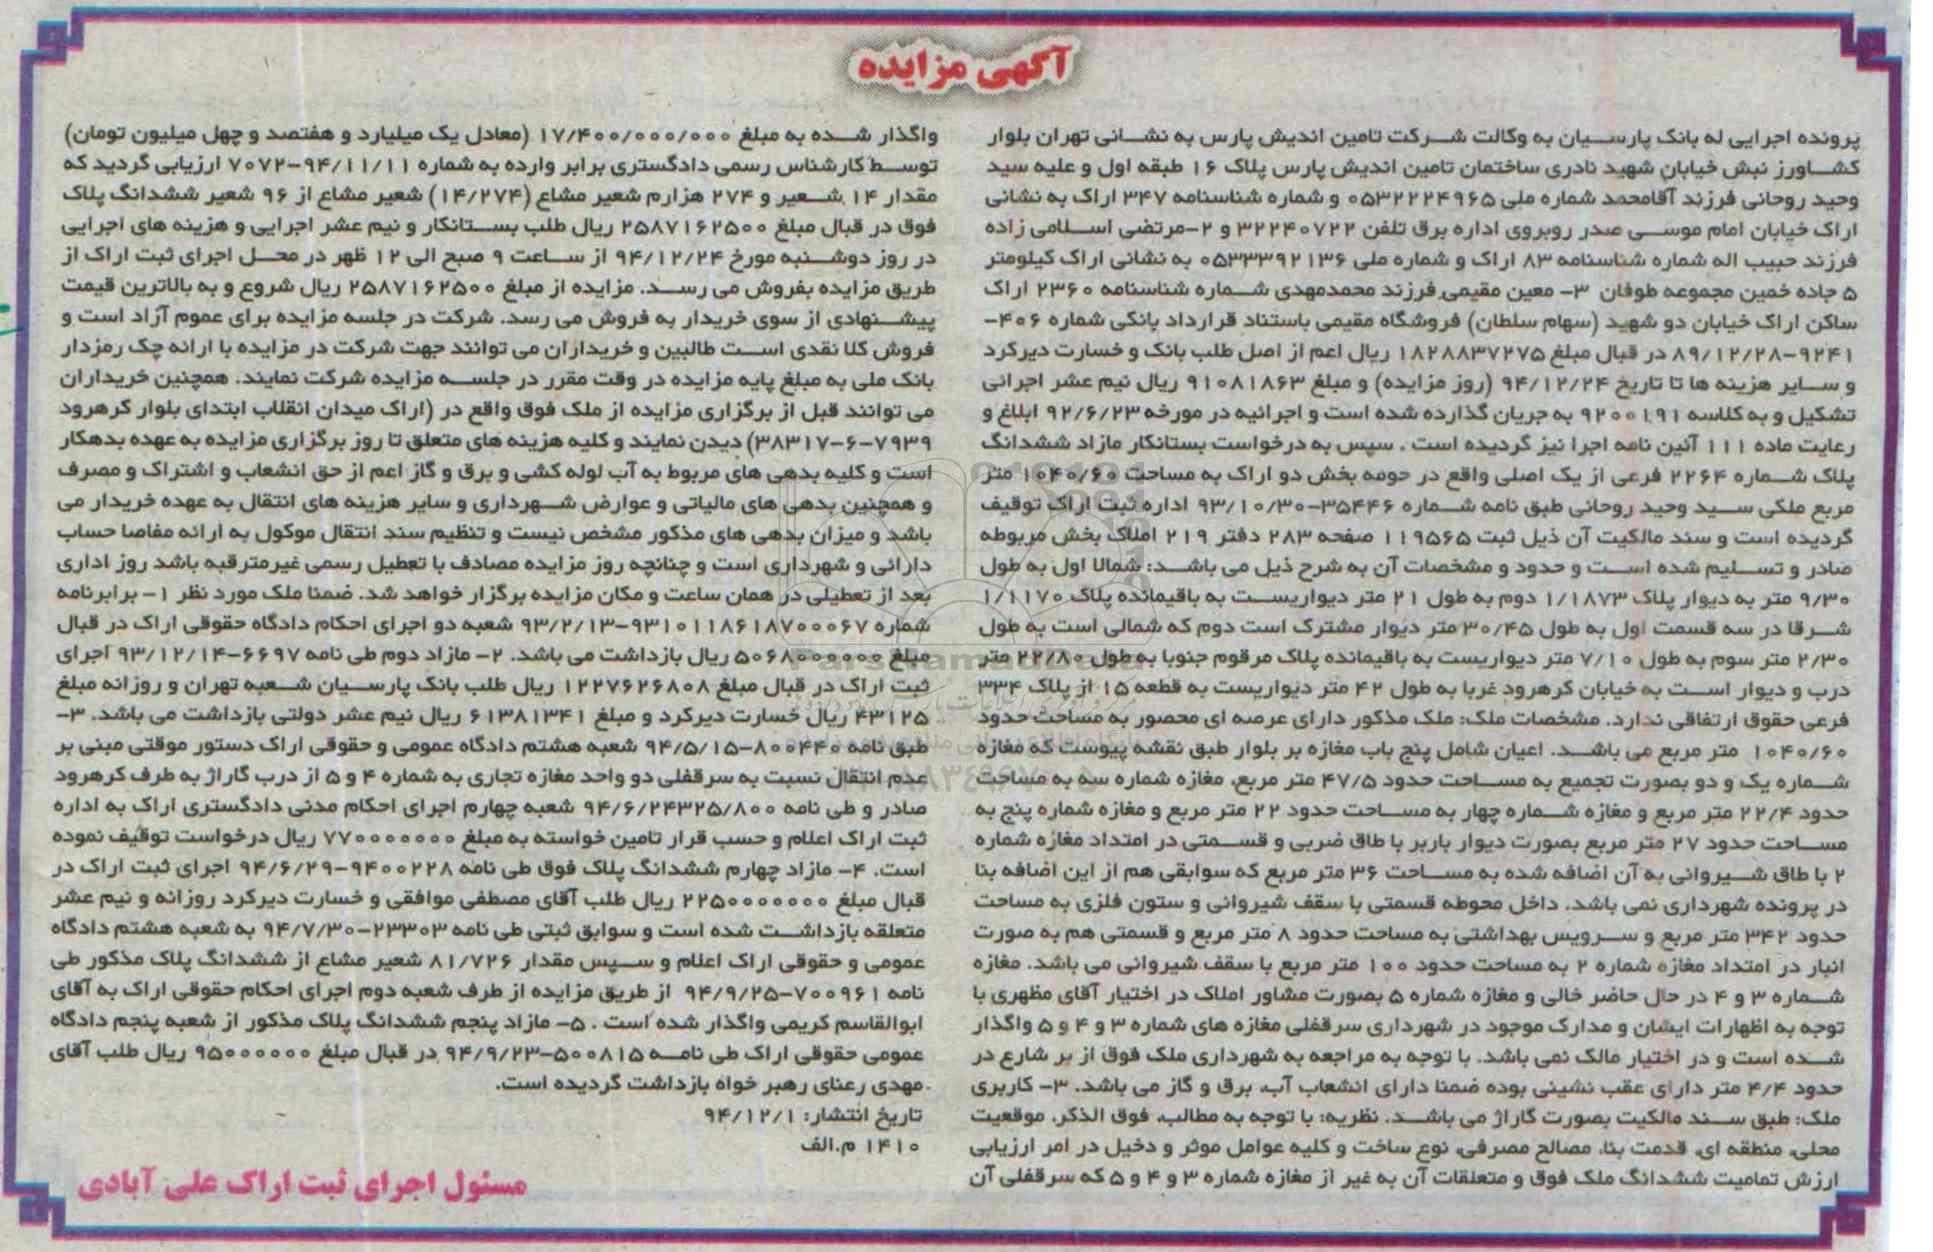 آگهی مزایده
پرونده اجرایی له بانک پارسیان به وکالت شرکت تامین اندیش پارس به نشانی تهران بلوار
کشاورز نبش خیابان شهید نادری ساختمان تامین اندیش پارس پلاک ۱۶ طبقه اول و علیه سید
وحید روحانی فرزند آقامحمد شماره ملی ۰۵۳۲۲۲۴۹۶۵ و شماره شناسنامه ۳۴۷ اراک به نشانی
اراک خیابان امام موسی صدر روبروی اداره برق تلفن ۳۲۲۴۰۷۲۲ و ۲-مرتضی اسلامی زاده
فرزند حبیب اله شماره شناسنامه ۸۳ اراک و شماره ملی ۰۵۳۳۳۹۲۱۳۶ به نشانی اراک کیلومتر
۵ جاده خمین مجموعه طوفان ۳- معین مقیمی فرزند محمدمهدی شماره شناسنامه ۲۳۶۰ اراک
ساکن اراک خیابان دو شهید (سهام سلطان) فروشگاه مقیمی باستناد قرارداد بانکی شماره ۴۰۶-
۸۹/۱۲/۲۸-۹۲۴۱ در قبال مبلغ ۱۸۲۸۸۳۷۲۷۵ ریال اعم از اصل طلب بانک و خسارت دیرکرد
و سایر هزینه ها تا تاریخ ۹۴/۱۲/۲۴ (روز مزایده) و مبلغ ۹۱۰۸۱۸۶۳ ریال نیم عشر اجرائی
تشکیل و به کلاسه ۹۲۰۰۱۹۱ به جریان گذارده شده است و اجرائیه در مورخه ۹۲/۶/۲۳ ابلاغ و
رعایت ماده ۱۱۱ آئین نامه اجرا نیز گردیده است . سپس به درخواست بستانکار مازاد ششدانگ
پلاک شماره ۲۲۶۴ فرعی از یک اصلی واقع در حومه بخش دو اراک به مساحت ۱۰۴۰/۶۰ متر
مربع ملکی سید وحید روحانی طبق نامه شماره ۳۵۴۴۶-۹۳/۱۰/۳۰ اداره ثبت اراک توقیف
گردیده است و سند مالکیت آن ذیل ثبت ۱۱۹۵۶۵ صفحه ۲۸۳ دفتر ۲۱۹ املاک بخش مربوطه
صادر و تسلیم شده است و حدود و مشخصات آن به شرح ذیل می باشد: شمالا اول به طول
۹/۳۰ متر به دیوار پلاک ۱/۱۸۷۳ دوم به طول ۲۱ متر دیواریست به باقیمانده پلاک ۱/۱۱۷۰
شرقا در سه قسمت اول به طول ۳۰/۴۵ متر دیوار مشترک است دوم که شمالی است به طول
۲/۳۰ متر سوم به طول ۷/۱۰ متر دیواریست به باقیمانده پلاک مرقوم جنوبا به طول ۲۲/۸۰ متر
درب و دیوار است به خیابان کرهرود غربا به طول ۴۲ متر دیواریست به قطعه ۱۵ از پلاک ۳۳۴
فرعی حقوق ارتفاقی ندارد. مشخصات ملک: ملک مذکور دارای عرصه ای محصور به مساحت حدود
۱۰۴۰/۶۰ متر مربع می باشد. اعیان شامل پنج باب مغازه بر بلوار طبق نقشه پیوست که مغازه
شماره یک و دو بصورت تجمیع به مساحت حدود ۴۷/۵ متر مربع، مغازه شماره سه به مساحت
حدود ۲۲/۴ متر مربع و مغازه شماره چهار به مساحت حدود ۲۲ متر مربع و مغازه شماره پنج به
مساحت حدود ۲۷ متر مربع بصورت دیوار باربر با طاق ضربی و قسمتی در امتداد مغازه شماره
۲ با طاق شیروانی به آن اضافه شده به مساحت ۳۶ متر مربع که سوابقی هم از این اضافه بنا
در پرونده شهرداری نمی باشد. داخل محوطه قسمتی با سقف شیروانی و ستون فلزی به مساحت
حدود ۳۴۲ متر مربع و سرویس بهداشتی به مساحت حدود ۸ متر مربع و قسمتی هم به صورت
انبار در امتداد مغازه شماره ۲ به مساحت حدود ۱۰۰ متر مربع با سقف شیروانی می باشد. مغازه
شماره ۳ و ۴ در حال حاضر خالی و مغازه شماره ۵ بصورت مشاور املاک در اختیار آقای مظهری با
توجه به اظهارات ایشان و مدارک موجود در شهرداری سرقفلی مغازه های شماره ۳ و ۴ و ۵ واگذار
شده است و در اختیار مالک نمی باشد. با توجه به مراجعه به شهرداری ملک فوق از بر شارع در
حدود ۴/۴ متر دارای عقب نشینی بوده ضمنا دارای انشعاب آب، برق و گاز می باشد. ۳- کاربری
ملک: طبق سند مالکیت بصورت گاراژ می باشد. نظریه: با توجه به مطالب فوق الذکر، موقعیت
محلی، منطقه ای، قدمت بنا، مصالح مصرفی، نوع ساخت و کلیه عوامل موثر و دخیل در امر ارزیابی
ارزش تمامیت ششدانگ ملک فوق و متعلقات آن به غیر از مغازه شماره ۳ و ۴ و ۵ که سرقفلی آن
واگذار شده به مبلغ ۱۷/۴۰۰/۰۰۰/۰۰۰ (معادل یک میلیارد و هفتصد و چهل میلیون تومان)
توسط کارشناس رسمی دادگستری برابر وارده به شماره ۹۴/۱۱/۱۱-۷۰۷۲ ارزیابی گردید که
مقدار ۱۴ شعیر و ۲۷۴ هزارم شعیر مشاع (۱۴/۲۷۴) شعیر مشاع از ۹۶ شعیر ششدانگ پلاک
فوق در قبال مبلغ ۲۵۸۷۱۶۲۵۰۰ ریال طلب بستانکار و نیم عشر اجرایی و هزینه های اجرایی
در روز دوشنبه مورخ ۹۴/۱۲/۲۴ از ساعت ۹ صبح الی ۱۲ ظهر در محل اجرای ثبت اراک از
طریق مزایده بفروش می رسد. مزایده از مبلغ ۲۵۸۷۱۶۲۵۰۰ ریال شروع و به بالاترین قیمت
پیشنهادی از سوی خریدار به فروش می رسد. شرکت در جلسه مزایده برای عموم آزاد است و
فروش کلا نقدی است طالبین و خریداران می توانند جهت شرکت در مزایده با ارائه چک رمزدار
بانک ملی به مبلغ پایه مزایده در وقت مقرر در جلسه مزایده شرکت نمایند. همچنین خریداران
می توانند قبل از برگزاری مزایده از ملک فوق واقع در (اراک میدان انقلاب ابتدای بلوار کرهرود
۷۹۳۹-۶-۳۸۳۱۷) دیدن نمایند و کلیه هزینه های متعلق تا روز برگزاری مزایده به عهده بدهکار
است و کلیه بدهی های مربوط به آب لوله کشی و برق و گاز اعم از حق انشعاب و اشتراک و مصرف
و همچنین بدهی های مالیاتی و عوارض شهرداری و سایر هزینه های انتقال به عهده خریدار می
باشد و میزان بدهی های مذکور مشخص نیست و تنظیم سند انتقال موکول به ارائه مفاصا حساب
دارائی و شهرداری است و چنانچه روز مزایده مصادف با تعطیل رسمی غیرمترقبه باشد روز اداری
بعد از تعطیلی در همان ساعت و مکان مزایده برگزار خواهد شد. ضمنا ملک مورد نظر ۱- برابرنامه
شماره ۹۳۱۰۱۱۸۶۱۸۷۰۰۰۶۷-۹۳/۲/۱۳ شعبه دو اجرای احکام دادگاه حقوقی اراک در قبال
مبلغ ۵۰۶۸۰۰۰۰۰۰ ریال بازداشت می باشد. ۲- مازاد دوم طی نامه ۶۶۹۷-۹۳/۱۲/۱۴ اجرای
ثبت اراک در قبال مبلغ ۱۲۲۷۶۲۶۸۰۸ ریال طلب بانک پارسیان شعبه تهران و روزانه مبلغ
۴۳۱۲۵ ریال خسارت دیرکرد و مبلغ ۶۱۳۸۱۳۴۱ ریال نیم عشر دولتی بازداشت می باشد. ۳-
طبق نامه ۸۰۰۴۴۰-۹۴/۵/۱۵ شعبه هشتم دادگاه عمومی و حقوقی اراک دستور موقتی مبنی بر
عدم انتقال نسبت به سرقفلی دو واحد مغازه تجاری به شماره ۴ و ۵ از درب گاراژ به طرف کرهرود
صادر و طی نامه ۹۴/۶/۲۴۳۲۵/۸۰۰ شعبه چهارم اجرای احکام مدنی دادگستری اراک به اداره
ثبت اراک اعلام و حسب قرار تامین خواسته به مبلغ ۷۷۰۰۰۰۰۰۰ ریال درخواست توقیف نموده
است. ۴- مازاد چهارم ششدانگ پلاک فوق طی نامه ۹۴۰۰۲۲۸-۹۴/۶/۲۹ اجرای ثبت اراک در
قبال مبلغ ۲۲۵۰۰۰۰۰۰۰ ریال طلب آقای مصطفی موافقی و خسارت دیرکرد روزانه و نیم عشر
متعلقه بازداشت شده است و سوابق ثبتی طی نامه ۲۳۳۰۳-۹۴/۷/۳۰ به شعبه هشتم دادگاه
عمومی و حقوقی اراک اعلام و سپس مقدار ۸۱/۷۲۶ شعیر مشاع از ششدانگ پلاک مذکور طی
نامه ۷۰۰۹۶۱-۹۴/۹/۲۵ از طریق مزایده از طرف شعبه دوم اجرای احکام حقوقی اراک به آقای
ابوالقاسم کریمی واگذار شده است . ۵- مازاد پنجم ششدانگ پلاک مذکور از شعبه پنجم دادگاه
عمومی حقوقی اراک طی نامه ۵۰۰۸۱۵-۹۴/۹/۲۳ در قبال مبلغ ۹۵۰۰۰۰۰۰ ریال طلب آقای
مهدی رعنای رهبر خواه بازداشت گردیده است.
تاریخ انتشار: ۹۴/۱۲/۱
۱۴۱۰ م.الف
مسئول اجرای ثبت اراک علی آبادی